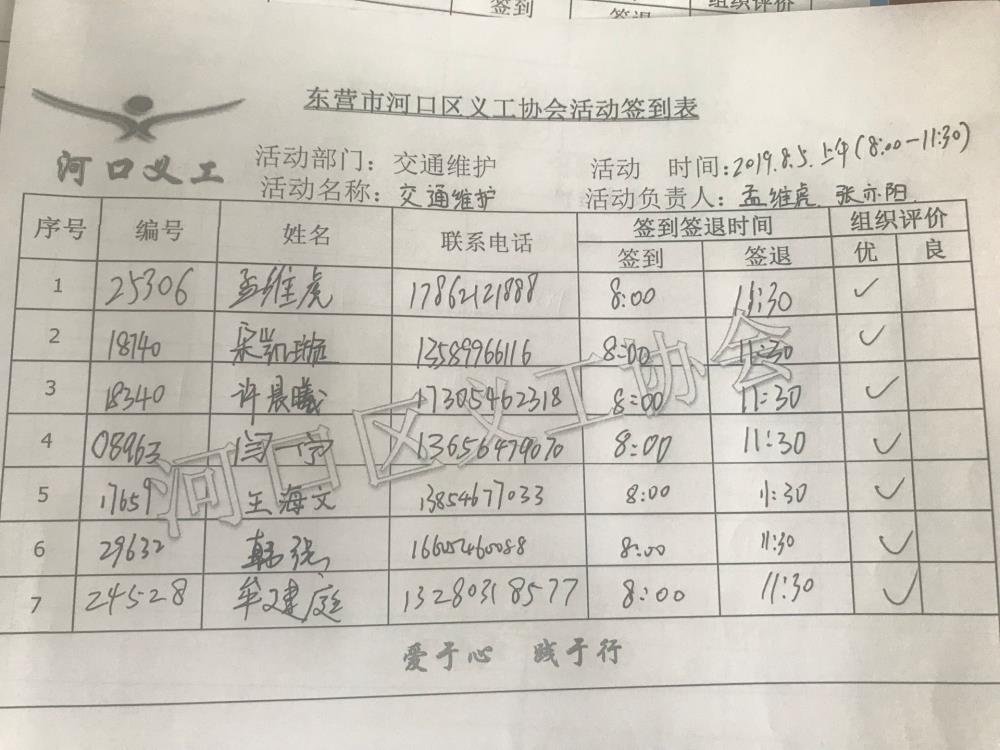 签到
签退
组织评价
东营市河口区义工协会活动签到表
河口义工
活动部门：交通维护
活动 时间：2019.8.5.上午（8:00-11:30）
活动名称：交通维护
活动负责人：孟维虎 张亦阳
序号 编号 姓名 联系电话 签到签退时间 组织评价
签到 签退 优 良
1 25306 孟维虎 17862121888 8:00 11:30 ✓
2 18740 宋凯璇 13589966116 8:00 11:30 ✓
3 18340 许晨曦 17305462318 8:00 11:30 ✓
4 08963 闫一宁 13656479070 8:00 11:30 ✓
5 17659 王海文 13854677033 8:00 11:30 ✓
6 29632 韩强 16605460088 8:00 11:30 ✓
7 24528 牟建庭 13280318577 8:00 11:30 ✓
河口区义工协会
爱于心 践于行